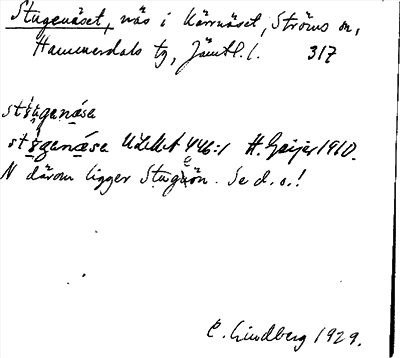 Stugenäset, näs i Kärrnäset, Ströms sn,
Hammerdals tg, Jämtl. l. 317
stúgenása
stúgenása ULMA 446:1 H. Geijer 1910.
N därom ligger Stugeön. Se d. o.!
E. Lindberg 1929.